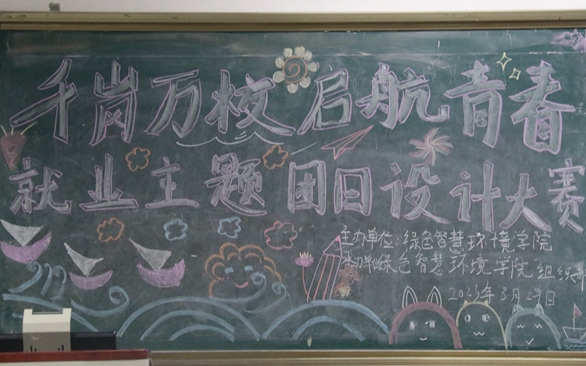 千岗万校 启航青春
就业主题团日设计大赛
主办单位:绿色智慧环境学院
承办单位绿色智慧环境学院组织部
2023年3月29日